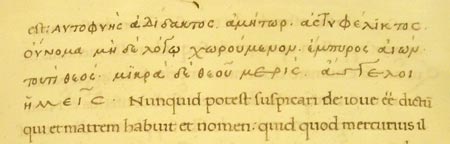 est: αυτοφυης αδιδακτος. αμήτωρ. αστυφέλικτος.
ούνομα μη δε λόγω χωρούμενον. έμπυρος αιών.
τουτι θεος. μικρα δε θεου μερις. αγγελοι
ημεις. Nunquid potest suspicari de ioue eē dictū
qui et matrem habuit et nomen: quid quod mercurius il